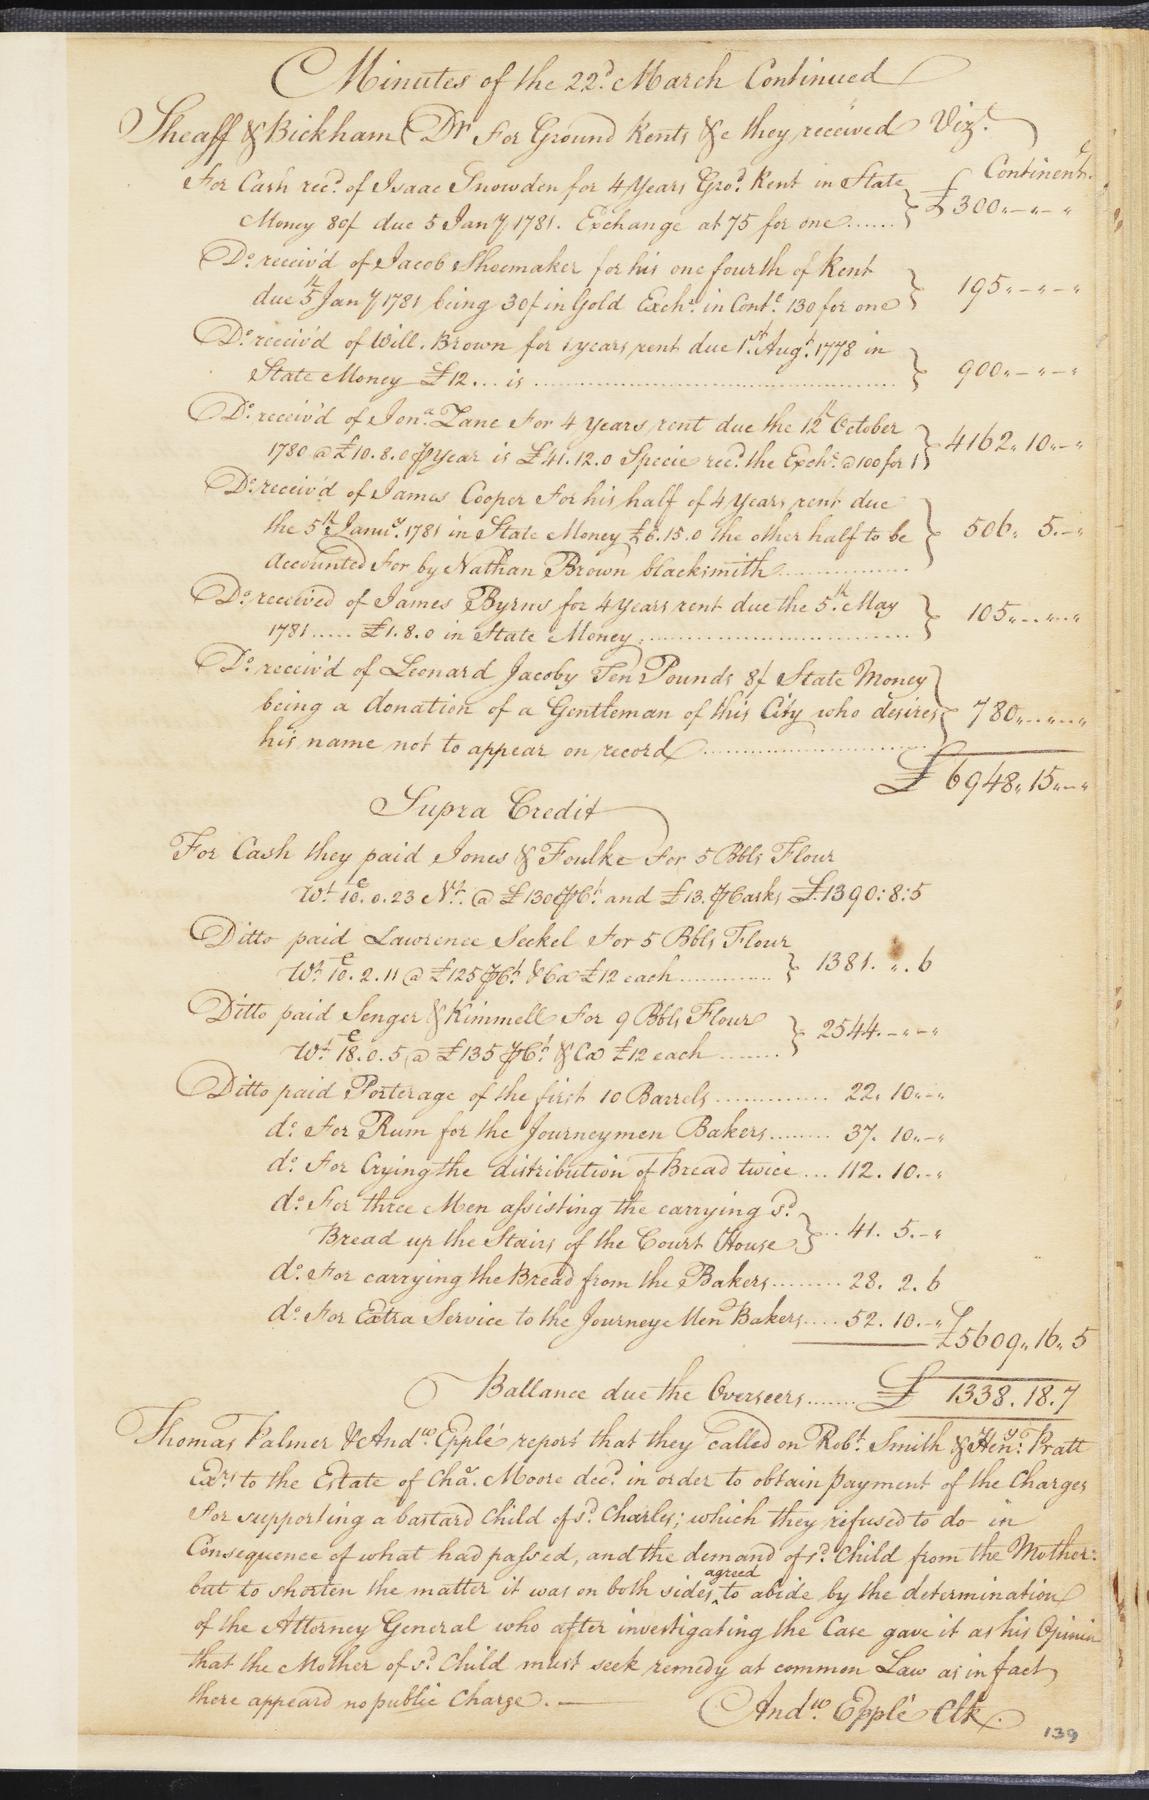 Minutes of the 22d. March Continued
Sheaff & Bickham Dr. For Ground Rents &c they received Vizt.
Continentl.
For Cash recd. of Isaac Snowden for 4 Years Grod. Rent in State
Money 80/ due 5 Jany. 1781. Exchange at 75 for one...... } £300"-"-"
Do. receiv'd of Jacob Shoemaker for his one fourth of Rent
due 5th Jany 1781 being 30/ in Gold Exche. in Contl. 130 for one } 195"-"-"
Do. receiv'd of Will. Brown for years rent due 1st. Augt. 1778 in
State Money £12... is .......... } 900"-"-"
Do. receiv'd of Jona. Zane For 4 years rent due the 12th October
1780 @ £10.8.0 ⅌ year is £41.12.0 Specie recd. the Exche. @ 100 for 1 } 4162" 10"-"
Do. receiv'd of James Cooper For his half of 4 Years rent due
the 5th. Januy. 1781 in State Money £6.15.0 the other half to be
accounted For by Nathan Brown blacksmith .......... } 506" 5"-"
Do. received of James Byrns for 4 years rent due the 5th. May
1781..... £1.8.0 in State Money .......... } 105"-"-"
Do. receiv'd of Leonard Jacoby Ten Pounds 8/ State Money
being a donation of a Gentleman of this City who desires
his name not to appear on record .......... } 780"-"-"
£ 6948" 15"-"
Supra Credit
For Cash they paid Jones & Foulke For 5 Bbls Flour
Wt. 10C. 0. 23 Nt. @ £130 ⅌ Ct. and £13. ⅌ Casks £1390:8:5
Ditto paid Lawrence Seckel For 5 Bbls Flour
Wt. 10C. 2. 11 @ £125 ⅌ Ct. & Ca £12 each .......... } 1381. ". 6
Ditto paid Senger & Kimmell For 9 Bbls Flour
Wt. 18C. 0. 5 @ £135 ⅌ Ct. & Ca £12 each ........ } 2544.-"-"
Ditto paid Porterage of the first 10 Barrels .......... 22" 10"-"
do. For Rum for the Journeymen Bakers........ 37. 10"-"
do. For Crying the distribution of Bread twice ... 112. 10.-"
do. For three Men assisting the carrying sd.
Bread up the Stairs of the Court House }.. 41. 5.-"
do. For carrying the Bread from the Bakers ......... 28. 2. 6
do. For Extra Service to the Journey Men Bakers.... 52. 10.-"
£5609" 16" 5
Ballance due the Overseers....... £ 1338. 18. 7
Thomas Palmer & Andw. Epplé report that they called on Robt. Smith & Heny. Pratt
Exrs. to the Estate of Chas. Moore decd. in order to obtain payment of the Charges
For supporting a bastard Child of sd. Charles; which they refused to do in
Consequence of what had passed, and the demand of sd. Child from the Mother:
agreed
but to shorten the matter it was on both sides ‸ to abide by the determination
of the Attorney General who after investigating the Case gave it as his Opinion
that the Mother of sd. Child must seek remedy at common Law as in fact
there appeard no public Charge. —
Andw. Epplé Clk.
139